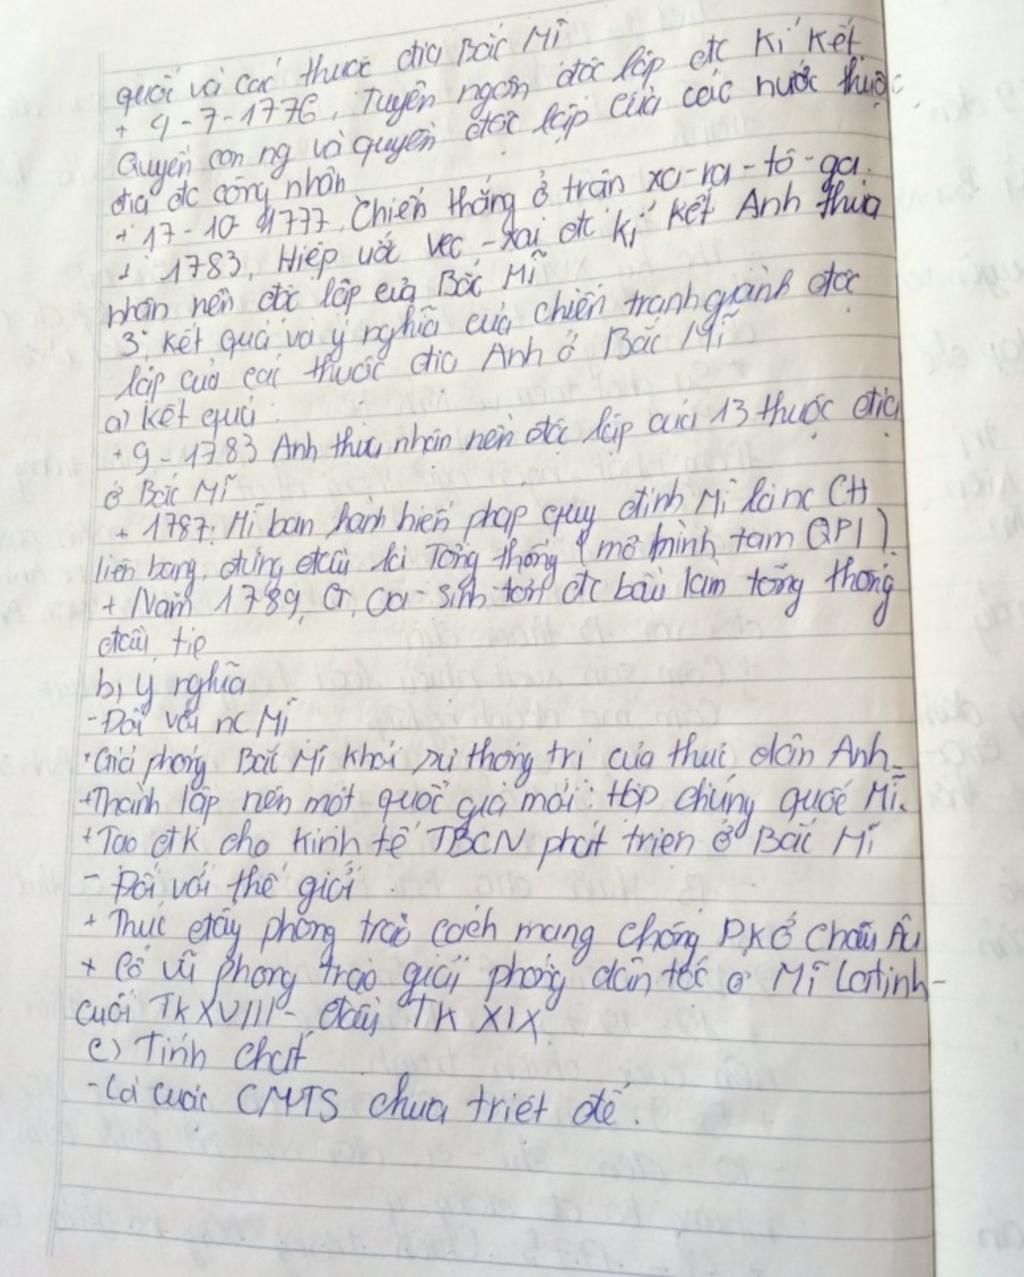 quốc và các thuộc địa Bắc Mĩ
+ 4-7-1776, Tuyên ngôn độc lập đc kí kết
Quyền con ng và quyền độc lập của các nước thuộc
địa đc công nhận
+ 17-10-1777, Chiến thắng ở trận xa-ra-tô-ga.
+ 1783, Hiệp ước vec-xai đc kí kết Anh thừa
nhận nền độc lập của Bắc Mĩ
3, kết quả và ý nghĩa của chiến tranh giành độc
lập của các thuộc địa Anh ở Bắc Mĩ
a) kết quả:
+ 9-1783 Anh thừa nhận nền độc lập của 13 thuộc địa
ở Bắc Mĩ
+ 1787. Mĩ ban hành hiến pháp quy định Mĩ là nc CH
liên bang, đứng đầu là Tổng thống (mô hình tam QPL).
+ Năm 1789, G, Oa-sinh tơn đc bầu làm tổng thống
đầu tiê
b, ý nghĩa
- Đối với nc Mĩ
+ Giải phóng Bắc Mĩ khỏi sự thống trị của thực dân Anh
+ Thành lập nên một quốc gia mới: Hợp chủng quốc Mĩ.
+ Tạo đk cho kinh tế TBCN phát triển ở Bắc Mĩ
- Đối với thế giới
+ Thúc đẩy phong trào cách mạng chống PK ở Châu Âu
+ Cổ vũ phong trào giải phóng dân tộc ở Mĩ Latinh-
cuối TK XVIII - đầu TK XIX
c) Tính chất
- Là cuộc CMTS chưa triệt để.